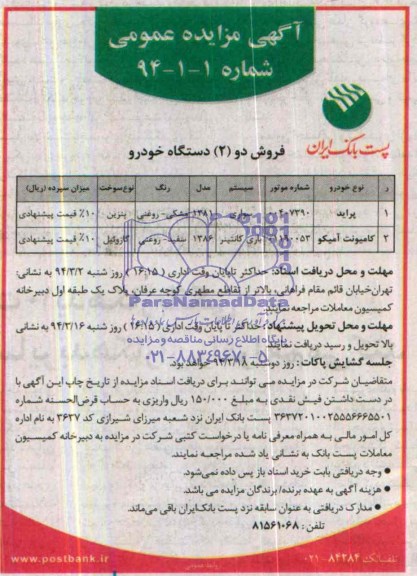 آگهی مزایده عمومی
شماره ۱-۱-۹۴
پست بانک ایران
فروش دو (۲) دستگاه خودرو
ر نوع خودرو شماره موتور سیستم مدل رنگ نوع سوخت میزان سپرده (ریال)
۱ پراید سواری ۱۳۸۱ مشکی- روغنی بنزین ۱۰٪ قیمت پیشنهادی
۲ کامیونت آمیکو باری کانتینر ۱۳۸۶ سفید- روغنی گازوئیل ۱۰٪ قیمت پیشنهادی
مهلت و محل دریافت اسناد: حداکثر تا پایان وقت اداری (۱۶:۱۵) روز شنبه ۹۴/۳/۲ به نشانی:
تهران خیابان قائم مقام فراهانی، بالاتر از تقاطع مطهری کوچه عرفان، پلاک یک طبقه اول دبیرخانه
کمیسیون معاملات مراجعه نمایند.
مهلت و محل تحویل پیشنهاد: حداکثر تا پایان وقت اداری (۱۶:۱۵) روز شنبه ۹۴/۳/۱۶ به نشانی
بالا تحویل و رسید دریافت نمایند.
جلسه گشایش پاکات: روز دوشنبه ۹۴/۳/۱۸ خواهد بود.
متقاضیان شرکت در مزایده می توانند برای دریافت اسناد مزایده از تاریخ چاپ این آگهی با
در دست داشتن فیش نقدی به مبلغ ۱۵۰/۰۰۰ ریال واریزی به حساب قرض الحسنه شماره
پست بانک ایران نزد شعبه میرزای شیرازی کد ۳۶۳۷ به نام اداره
کل امور مالی به همراه معرفی نامه یا درخواست کتبی شرکت در مزایده به دبیرخانه کمیسیون
معاملات پست بانک به نشانی یاد شده مراجعه نمایند.
● وجه دریافتی بابت خرید اسناد باز پس داده نمی‌شود.
● هزینه آگهی به عهده برنده/ برندگان مزایده می باشد.
● مدارک دریافتی به عنوان سابقه نزد پست بانک ایران باقی می‌ماند.
تلفن: ۸۱۵۶۱۰۶۸
ParsNamadData
پایگاه اطلاع رسانی مناقصه و مزایده
۰۲۱-۸۸۳۴۹۶۷۰-۵
www.postbank.ir
روابط عمومی
تلفنبانک: ۸۴۲۸۴-۰۲۱